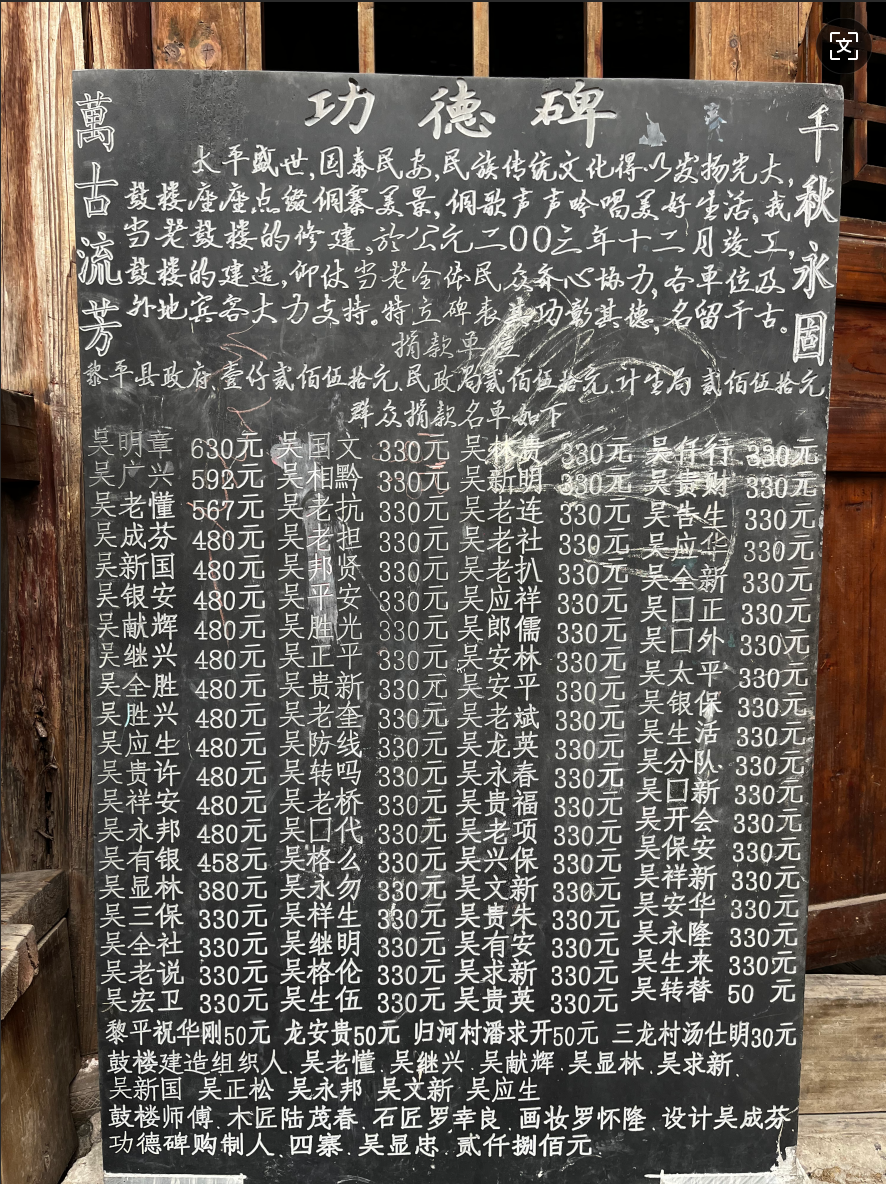 功德碑
萬古流芳
千秋永固
太平盛世,国泰民安,民族传统文化得以发扬光大,
鼓楼座座点缀侗寨美景,侗歌声声吟唱美好生活,我
当老鼓楼的修建,於公元二〇〇三年十二月竣工,
鼓楼的建造,仰仗当老全体民众齐心协力,各单位及
外地宾客大力支持。特立碑表其功彰其德,名留千古。
捐款单位
黎平县政府.壹仟贰佰伍拾元.民政局贰佰伍拾元.计生局贰佰伍拾元
群众捐款名单如下
吴明章 630元 吴国文 330元 吴林贵 330元 吴仟行 330元
吴广兴 592元 吴相黔 330元 吴新明 330元 吴贵财 330元
吴老懂 567元 吴老抗 330元 吴老连 330元 吴告生 330元
吴成芬 480元 吴老担 330元 吴老社 330元 吴应华 330元
吴新国 480元 吴邦贤 330元 吴老扒 330元 吴全新 330元
吴银安 480元 吴平安 330元 吴应祥 330元 吴口正 330元
吴献辉 480元 吴胜光 330元 吴郎儒 330元 吴口外 330元
吴继兴 480元 吴正平 330元 吴安林 330元 吴太平 330元
吴全胜 480元 吴贵新 330元 吴安平 330元 吴银保 330元
吴胜兴 480元 吴老奎 330元 吴老斌 330元 吴生活 330元
吴应生 480元 吴防线 330元 吴龙英 330元 吴分队 330元
吴贵许 480元 吴转吗 330元 吴永春 330元 吴口新 330元
吴祥安 480元 吴老桥 330元 吴贵福 330元 吴开会 330元
吴永邦 480元 吴口代 330元 吴老项 330元 吴保安 330元
吴有银 458元 吴格么 330元 吴兴保 330元 吴祥新 330元
吴显林 380元 吴永勿 330元 吴文新 330元 吴安华 330元
吴三保 330元 吴样生 330元 吴贵朱 330元 吴永隆 330元
吴全社 330元 吴继明 330元 吴有安 330元 吴生来 330元
吴老说 330元 吴格伦 330元 吴求新 330元 吴转替 50元
吴宏卫 330元 吴生伍 330元 吴贵英 330元
黎平祝华刚50元 龙安贵50元 归河村潘求开50元 三龙村汤仕明30元
鼓楼建造组织人.吴老懂.吴继兴.吴献辉.吴显林.吴求新.
吴新国 吴正松 吴永邦 吴文新 吴应生
鼓楼师傅.木匠陆茂春.石匠罗幸良.画妆罗怀隆.设计吴成芬
功德碑购制人.四寨.吴显忠.贰仟捌佰元